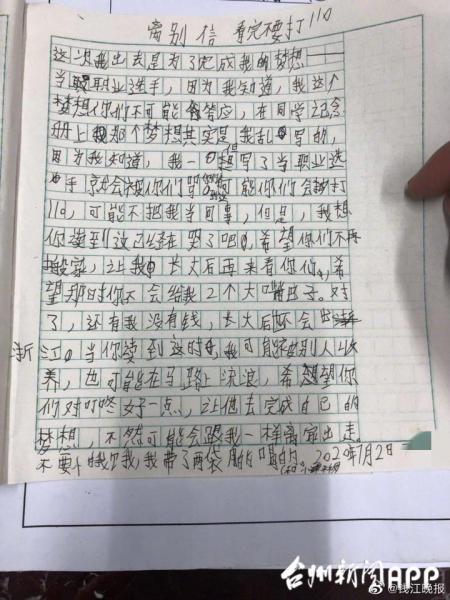 离别信 看完不要打110
这次我出去是为了完成我的梦想——
当职业选手，因为我知道，我这个
梦想你们不可能答应，在同学纪念
册上我那个梦想其实是我乱写的，
因为我知道，我一写了当职业选
手就会被你们可能你们会打
110，可能不把我当回事，但是，我想
你读到这已经在哭了吧，希望你们不再
搬家，让我长大后再来看你们，希
望那时你不会给我2个大嘴巴子。对
了，还有我没有钱，长大后还会出
浙江。当你读到这时，我可能被别人收
养，也可能在马路上流浪，希望你
们对叮咚好一点，让他去完成自己的
梦想，不然可能会跟我一样离家出走。
不要我，我带了两袋喝的 2020年7月2日
台州新闻APP
@钱江晚报